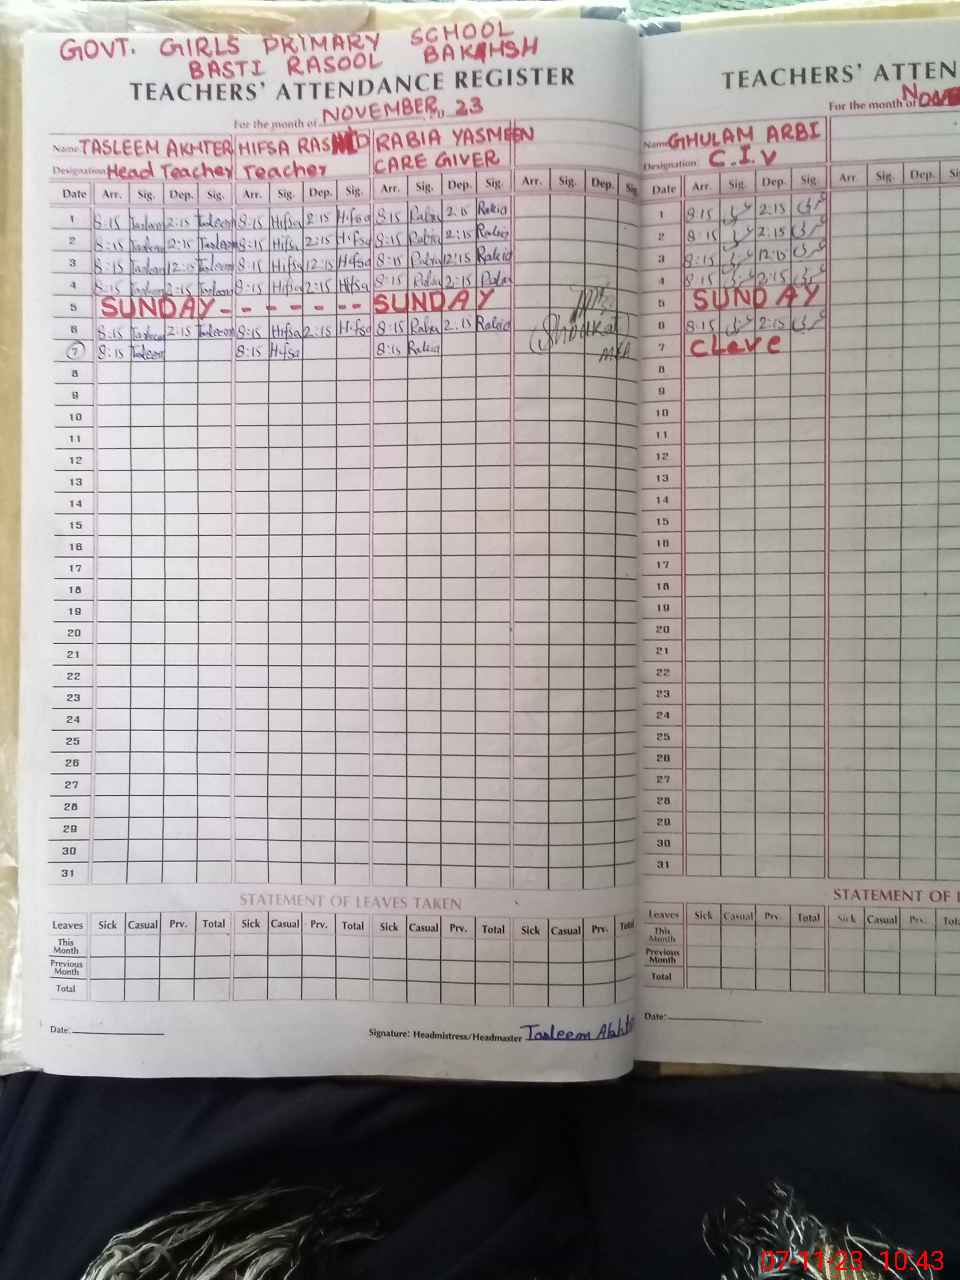 GOVT. GIRLS PRIMARY SCHOOL
BASTI RASOOL BAKHSH
TEACHERS' ATTENDANCE REGISTER
For the month of NOVEMBER, 23
Name TASLEEM AKHTER HIFSA RASHID RABIA YASMEEN
Designation Head Teacher Teacher CARE GIVER
Date Arr. Sig. Dep. Sig. Arr. Sig. Dep. Sig. Arr. Sig. Dep. Sig. Arr. Sig. Dep. Sig
1 8:15 Tasleem 2:15 Tasleem 8:15 Hifsa 2:15 Hifsa 8:15 Rabia 2:15 Rabia
2 8:15 Tasleem 2:15 Tasleem 8:15 Hifsa 2:15 Hifsa 8:15 Rabia 2:15 Rabia
3 8:15 Tasleem 12:15 Tasleem 8:15 Hifsa 12:15 Hifsa 8:15 Rabia 12:15 Rabia
4 8:15 Tasleem 2:15 Tasleem 8:15 Hifsa 2:15 Hifsa 8:15 Rabia 2:15 Rabia
5 SUNDAY - - - - - SUNDAY
6 8:15 Tasleem 2:15 Tasleem 8:15 Hifsa 2:15 Hifsa 8:15 Rabia 2:15 Rabia
7 8:15 Tasleem 8:15 Hifsa 8:15 Rabia
8
9
10
11
12
13
14
15
16
17
18
19
20
21
22
23
24
25
26
27
28
29
30
31
STATEMENT OF LEAVES TAKEN
Leaves Sick Casual Prv. Total Sick Casual Prv. Total Sick Casual Prv. Total Sick Casual Prv. Total
This Month
Previous Month
Total
Date:
Signature: Headmistress/Headmaster Tasleem Akhter
TEACHERS' ATTEN
For the month of NOVE
Name GHULAM ARBI
Designation C.I.V
Date Arr. Sig. Dep. Sig. Arr. Sig. Dep. Si
1 8:15 2:15
2 8:15 2:15
3 8:15 12:15
4 8:15 2:15
5 SUNDAY
6 8:15 2:15
7 CLeve
8
9
10
11
12
13
14
15
16
17
18
19
20
21
22
23
24
25
26
27
28
29
30
31
STATEMENT OF
Leaves Sick Casual Prv. Total Sick Casual Prv. Tot
This Month
Previous Month
Total
Date:
07-11-23 10:43